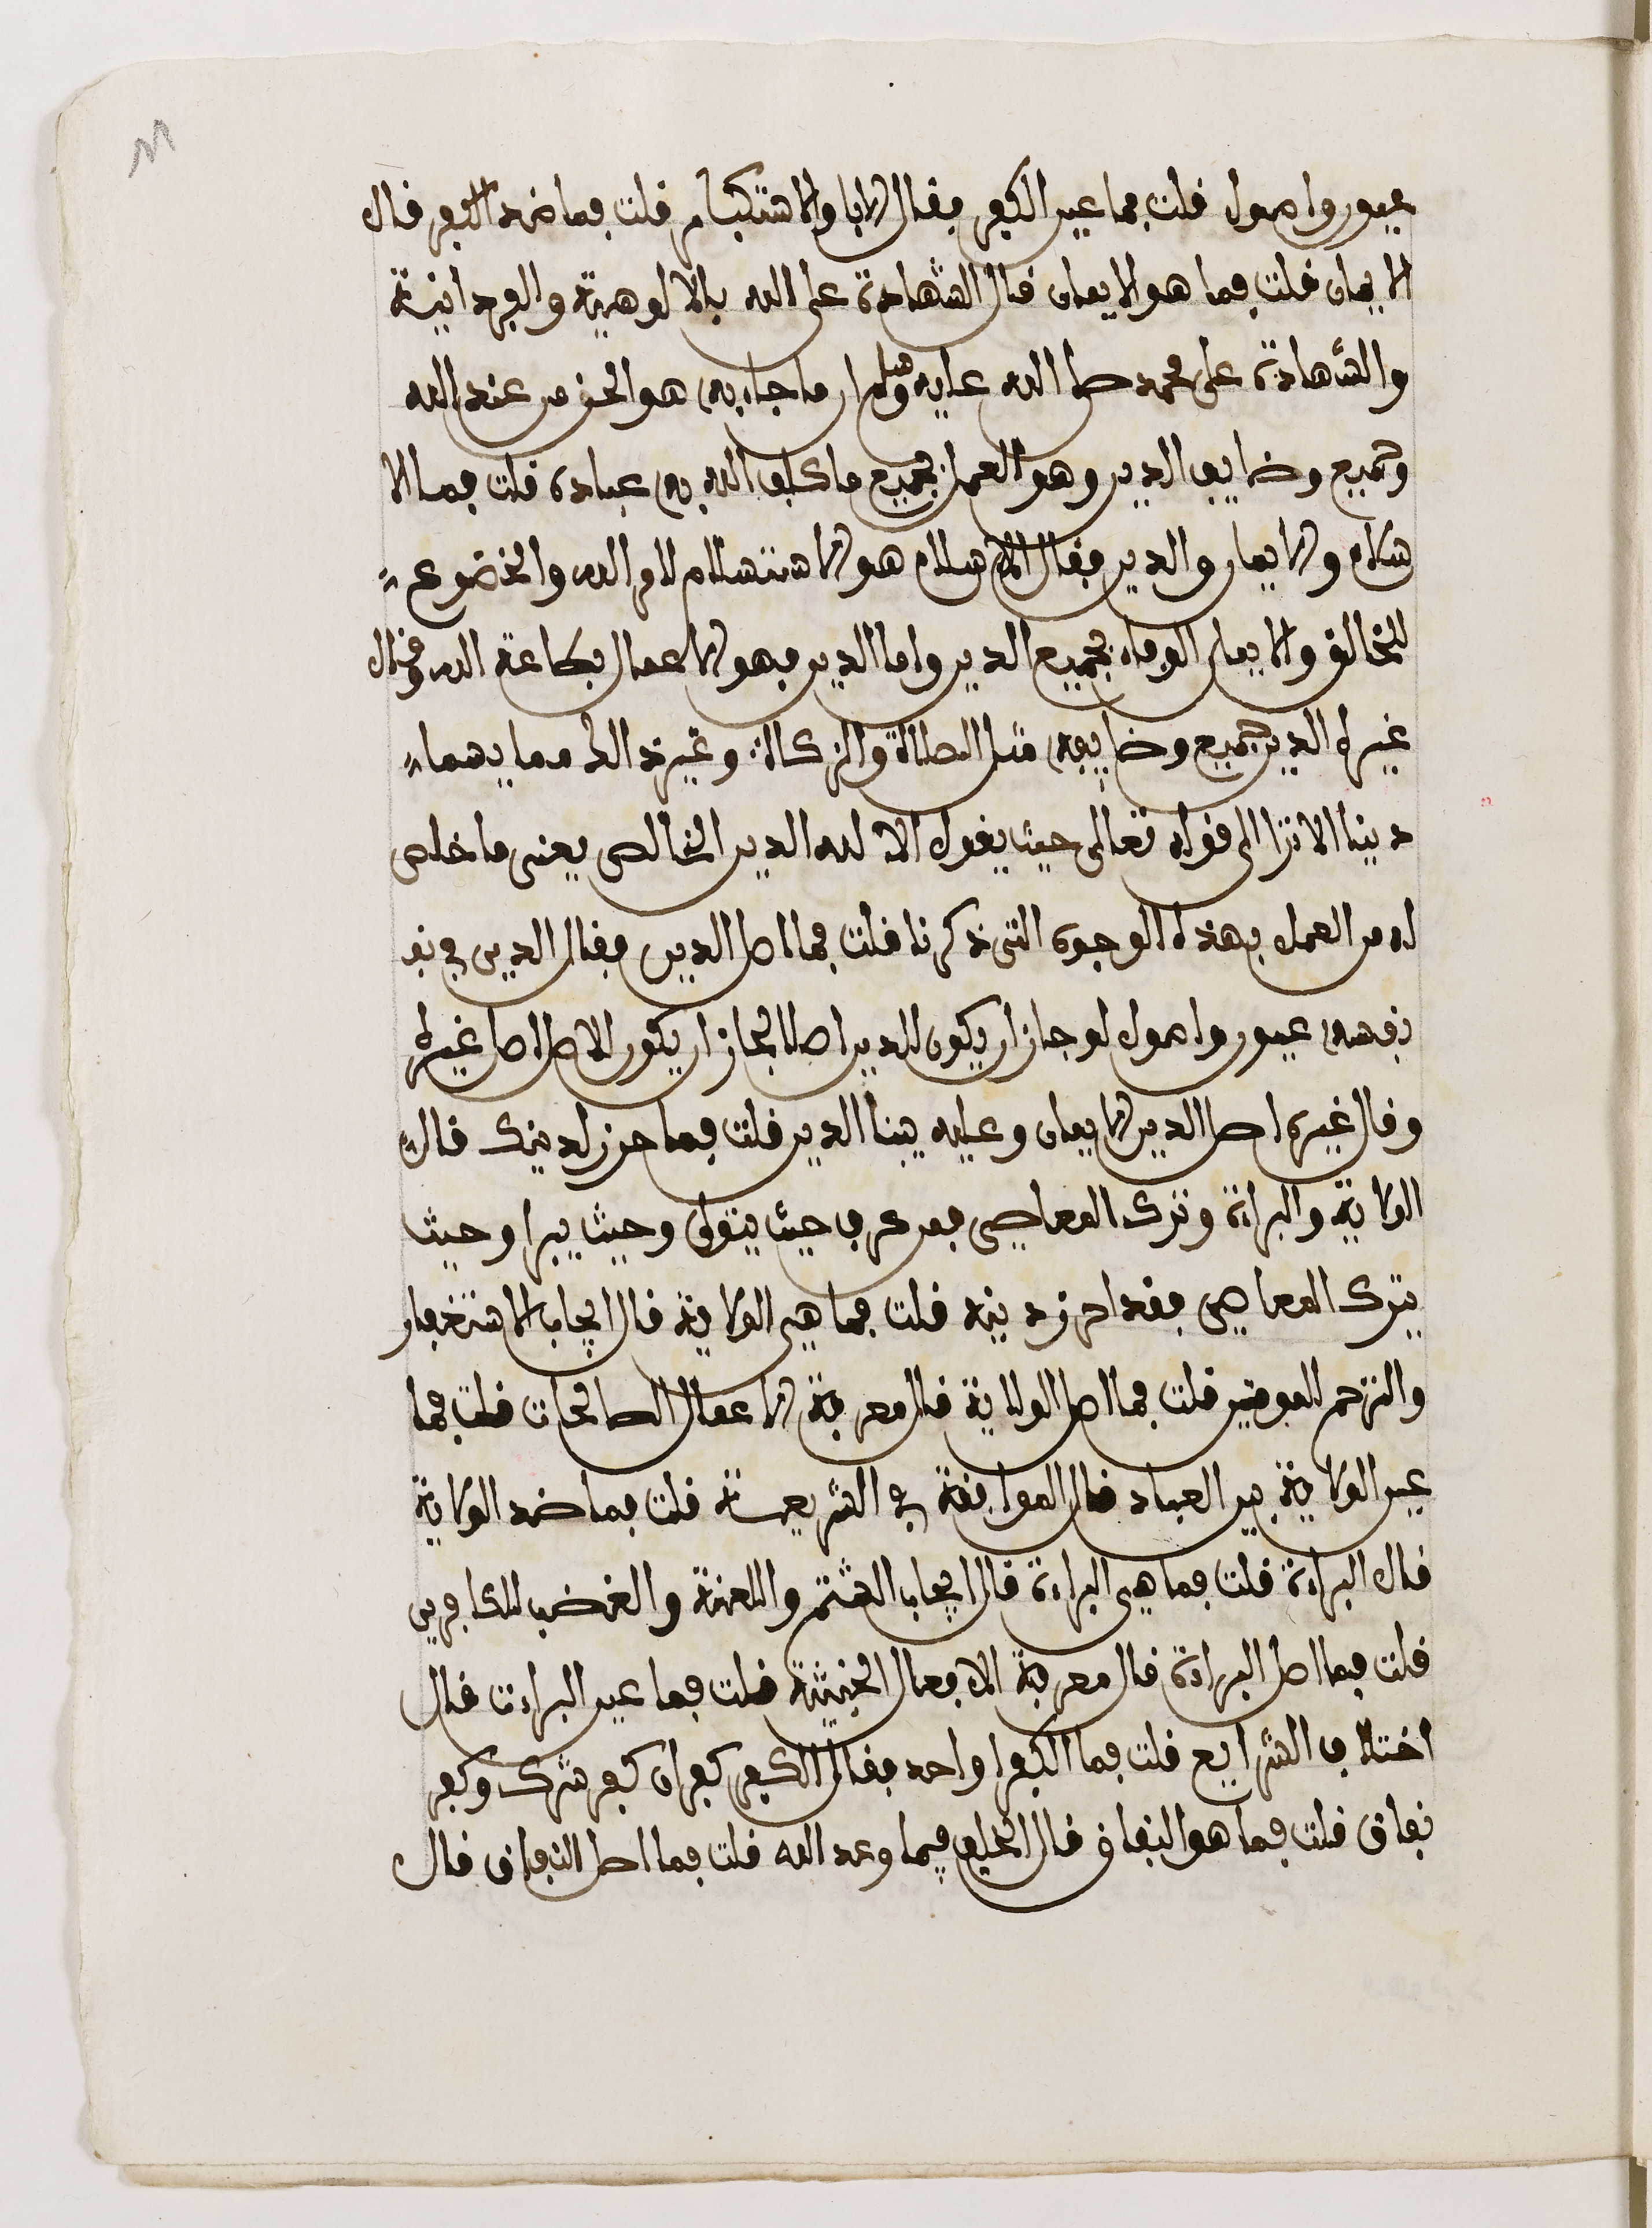 عيون واصول قلت فما عين الكفر فقال الابا والاستكبار قلت فما ضد الكفر قال
الايمان قلت فما هو الايمان قال الشهادة على الله بالالوهية والوحدانية
والشهادة على محمد صلى الله عليه وسلم ان ما جاء به هو الحق من عند الله
وجميع وضايف الدين وهو العمل بجميع ما كلف الله به عباده قلت فما الا
سلام والايمان والدين فقال الاسلام هو الاستسلام لامر الله والخضوع
للخالق والايمان الوفاء بجميع الدين واما الدين فهو الاعمال بطاعة الله وقال
غيره الدين جميع وضايفه مثل الصلاة والزكاة وغير ذالك مما يسما
دينا الا ترا الى قوله تعالى حيث يقول الا لله الدين الخالص يعنى ما خلص
له من العمل بهذه الوجوه التى ذكرنا قلت فما اصل الدين فقال الدين في نفـ
نفسه عيون واصول لو جاز ان يكون للدين اصلا لجاز ان يكون للاصل اصل غيره
وقال غيره اصل الدين الايمان وعليه يبنا الدين قلت فما حرز لدينك قال
الولاية والبراءة وترك المعاصى فمن عرف حيث يتولى وحيث يبرا وحيث
يترك المعاصى فقد احرز دينه قلت فما هي الولاية قال ايجاب الاستغفار
والترحم للمومنين قلت فما اصل الولاية قال معرفة الاعمال الصالحات قلت فما
عين الولاية بين العباد قال الموافقة في الشريعـة قلت فما ضد الولاية
قال البراءة قلت فما هي البراءة قال ايجاب الشتم واللعنة والغضب للكافرين
قلت فما اصل البراءة قال معرفة الافعال الخبيثة قلت فما عين البراءة قال
اختلاف الشرايع قلت فما الكفر اواحد فقال الكفر كفران كفر شرك وكفر
نفاق قلت فما هو النفاق قال الخلف فيما وعد الله قلت فما اصل النفاق قال